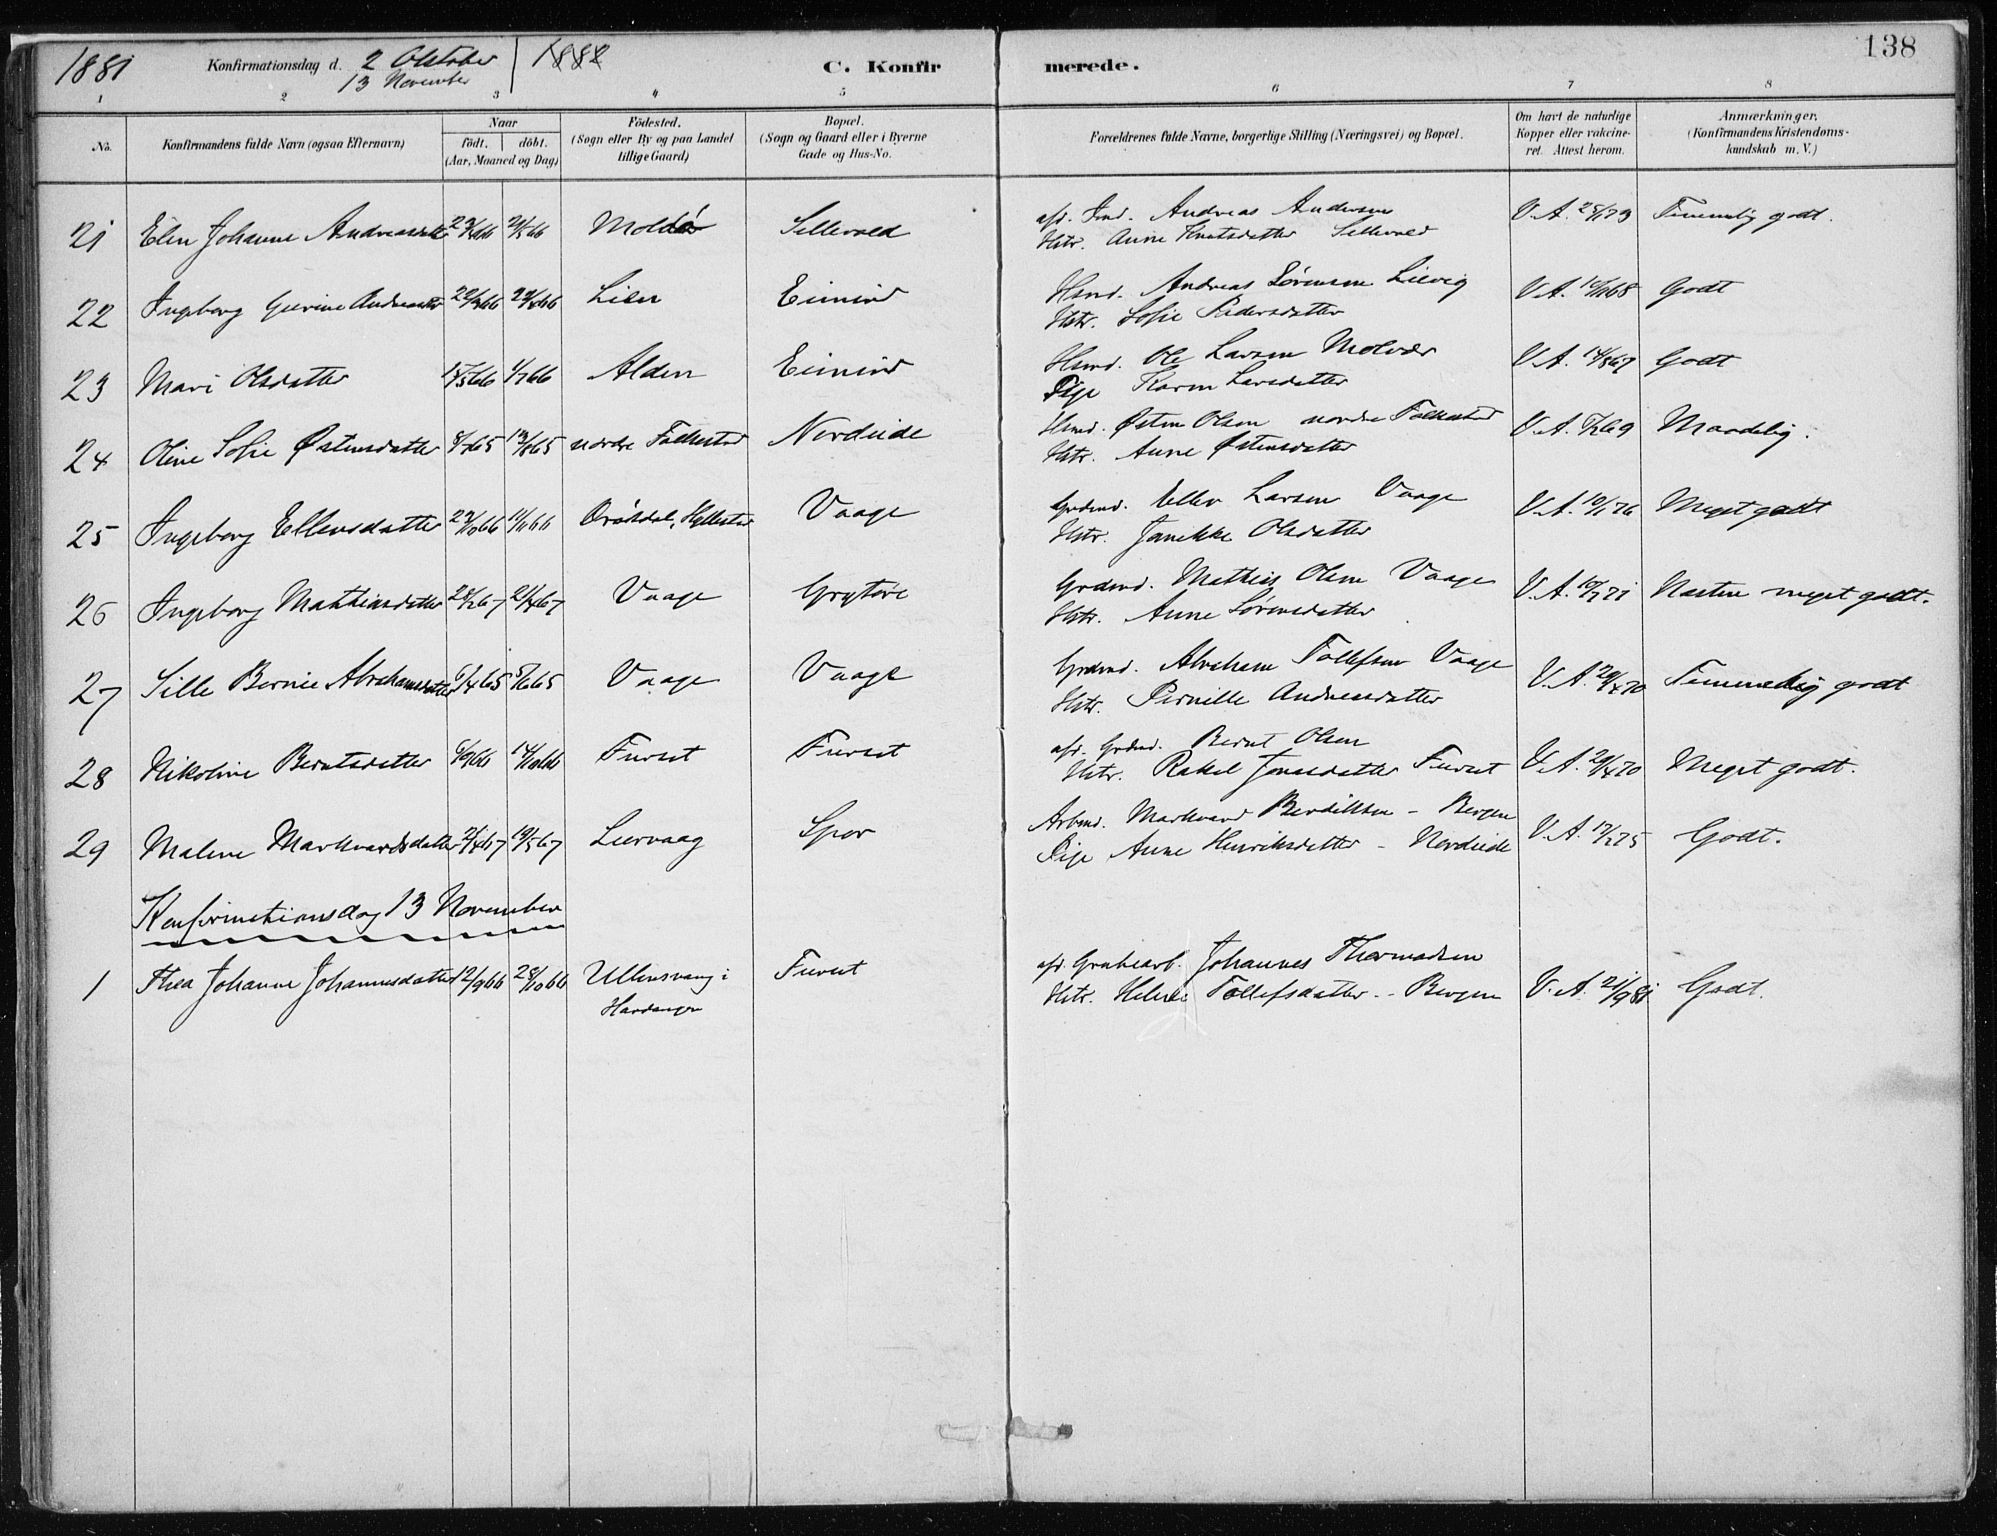 1881 Konfirmationsdag d. 2 Oktober 1882 C. Konfir merede. 138
13 November
1 2 3 4 5 6 7 8
No. Konfirmandens fulde Navn (ogsaa Efternavn) Naar födt. döbt. (Aar, Maaned og Dag) Födested. (Sogn eller By og paa Landet tillige Gaard) Bopæl. (Sogn og Gaard eller i Byerne Gade og Hus-No. Forældrenes fulde Navne, borgerlige Stilling (Næringsvei) og Bopæl. Om havt de naturlige Kopper eller vakcineret. Attest herom. Anmærkninger. (Konfirmandens Kristendomskundskab m. V.)
21 Elen Johanne Andreasdatter Moldør Sellevold afd. Andreas Andersen V. A. 25/1 73 Temmelig godt.
Hstr. Anne Knutsdatter Sellevold
22 Ingeborg Andreasdtr Lien Eimind Hsmd. Andreas Sørensen Lievig V. A. 68 Godt
Hstr. Sofie Pedersdatter
23 Mari Olsdatter 15/5 66 1/7 66 Alden Eimind Hsmd. Ole Larsen Molvær V. A. 14/8 67 Godt
Pige Karen Larsdatter
24 Oline Sofie Østensdatter 8/7 65 13/8 65 nordre Folkestad Nordeide Hsmd. Østen Olsen nordre Folkestad V. A. 69 Maadelig.
Hstr. Anne Østensdatter
25 Ingeborg Ellensdatter 29/10 66 11/11 66 Hyllestad Vaage Grdmd. Larsen Vaage V. A. 10/1 76 Meget godt
Hstr. Janikke Olsdatter
26 Ingeborg Mathiasdatter 28/2 67 21/4 67 Vaage Grytøre Grdmd. Mathias Olsen Vaage V. A. 10/7 71 Næsten meget godt.
Hstr. Anne Sørensdatter
27 Sille Bernie Abrahamsdatter 6/4 65 5/6 65 Vaage Vaage Grdmd. Abraham Tollefsen Vaage V. A. 20/4 70 Temmelig godt
Hstr. Pernille Andreasdatter
28 Nikoline Berntsdatter 6/9 66 14/10 66 Furset Furset afd. Grdmd. Bernt Olsen V. A. 20/4 70 Meget godt.
Hstr. Rakel Jonasdatter Furset
29 Malene Markvardsdatter 21/4 67 19/5 67 Leervaag Spor Arbmd. Markvard Bendiktsen - Bergen V. A. 75 Godt.
Pige Anne Henriksdatter - Nordeide
Konfirmationsdag 13 November
1 Thea Johanne Johannesdatter 12/9 66 28/10 66 Ullensvang i Furset afd. Grubearb. Johannes Thormodsen V. A. 21/9 81 Godt.
Hardanger Hstr. Helene Tollefsdatter - Bergen